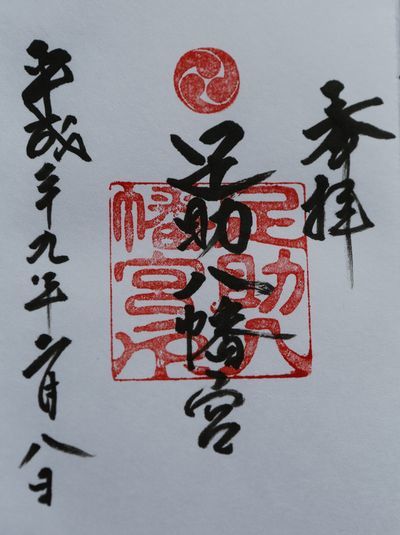 奉拝
足助八幡宮
足助八
幡宮印
平成二十九年六月八日